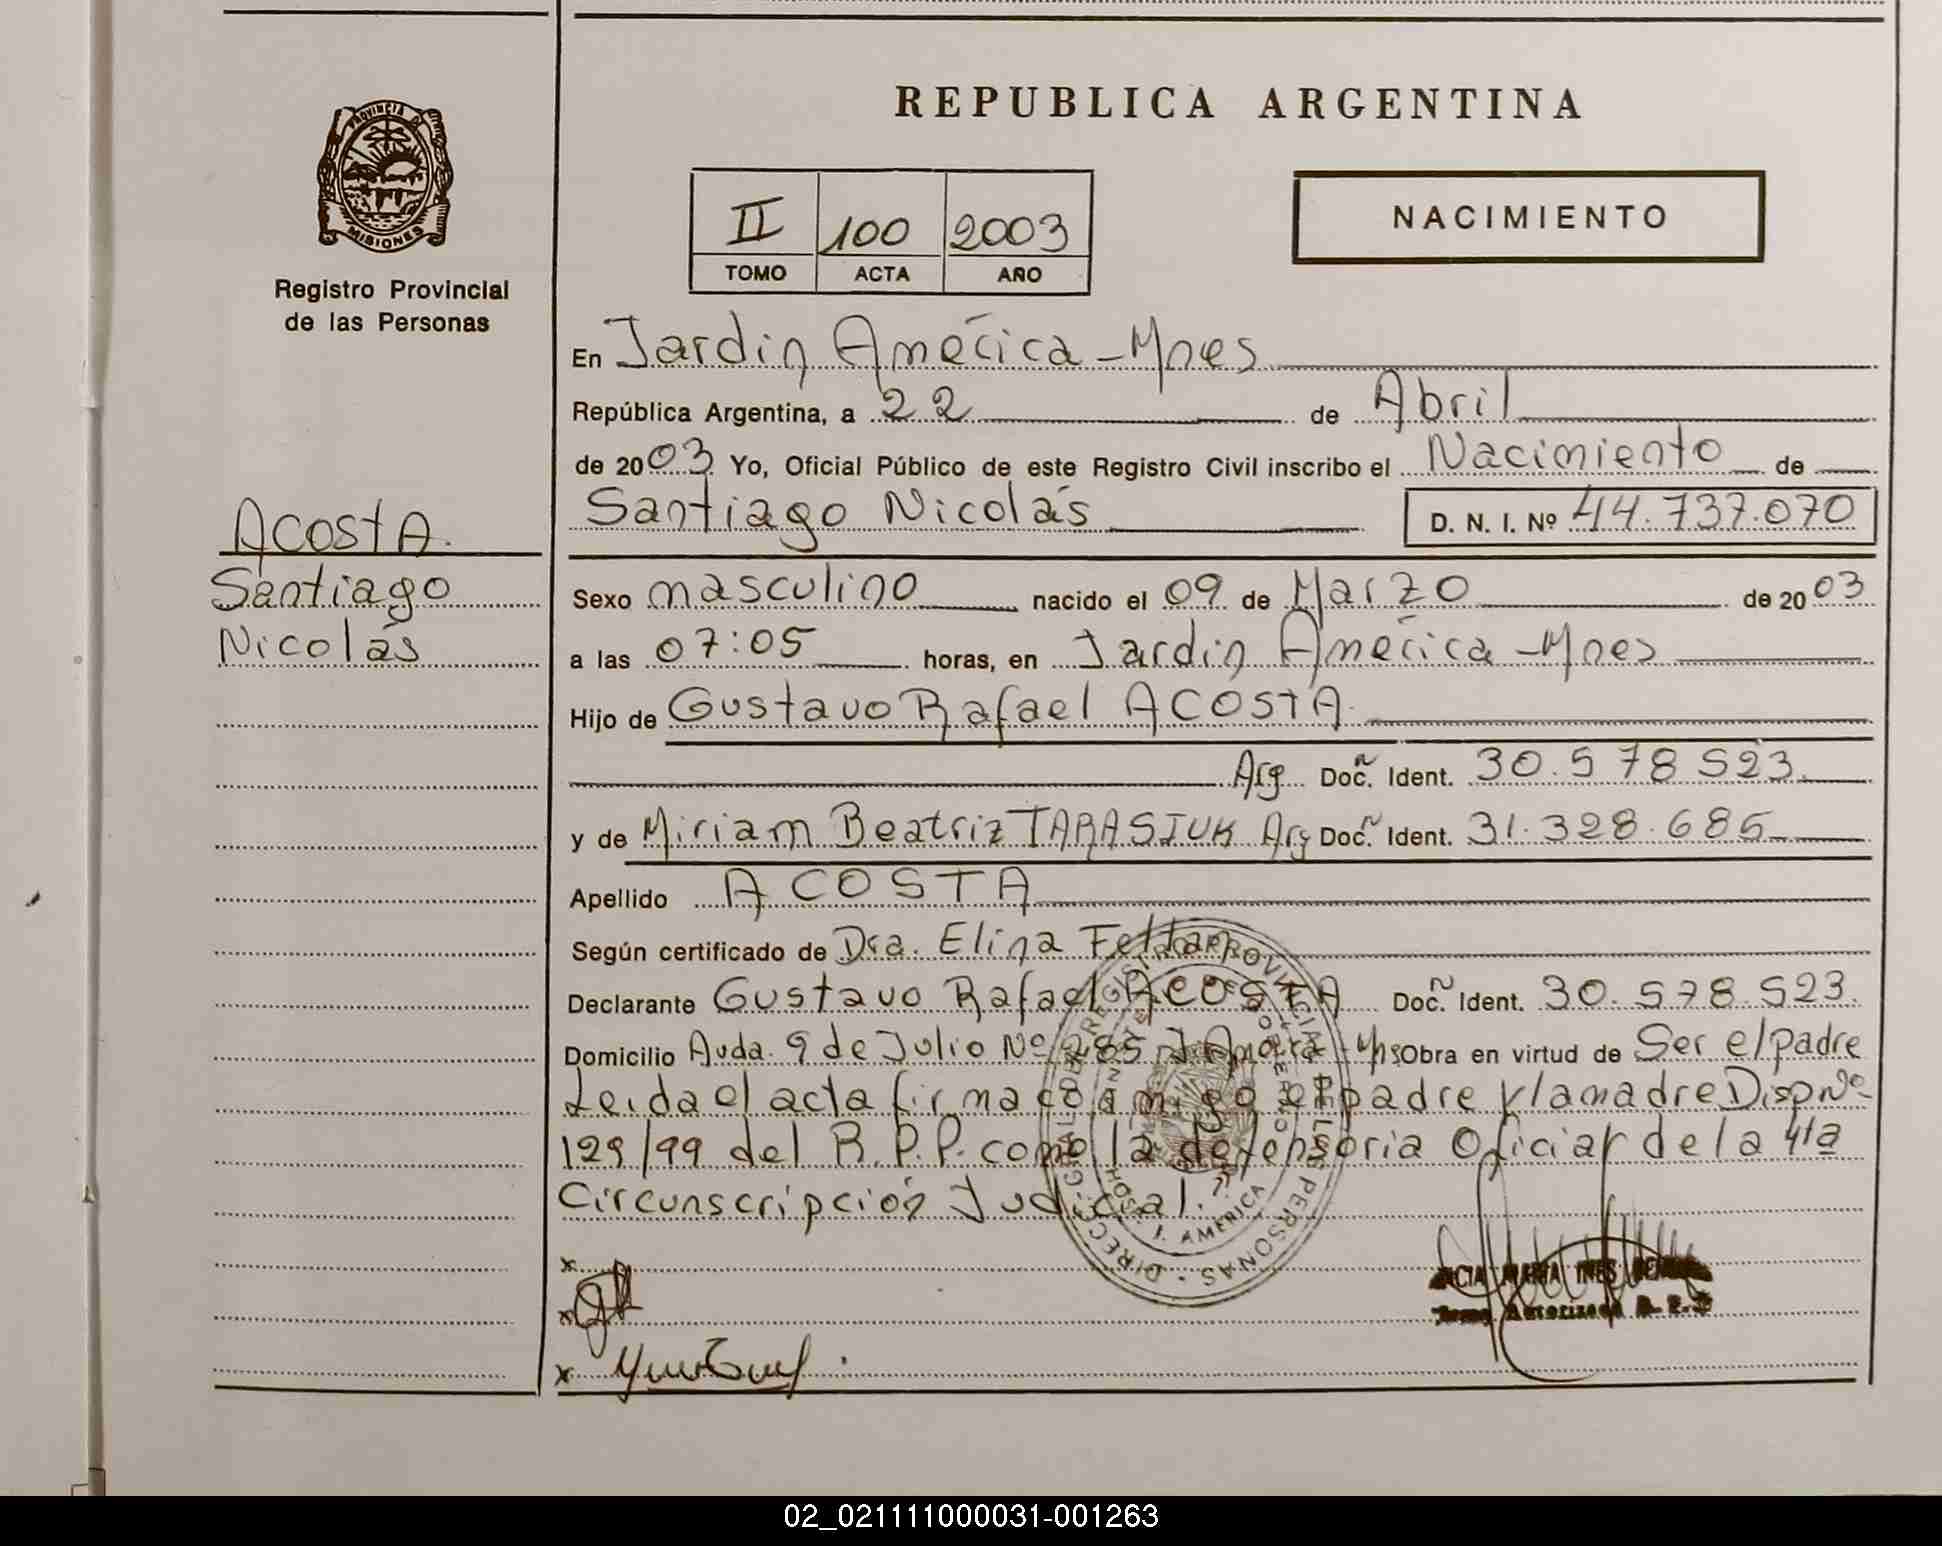 PROVINCIA DE
MISIONES
Registro Provincial
de las Personas
ACOSTA.
Santiago
Nicolás
REPUBLICA ARGENTINA
II 100 2003
TOMO ACTA AÑO
NACIMIENTO
En Jardin América - Mnes
República Argentina, a 22 de Abril
de 2003 Yo, Oficial Público de este Registro Civil inscribo el Nacimiento de
Santiago Nicolás D. N. I. Nº 44.737.070
Sexo masculino nacido el 09 de Marzo de 2003
a las 07:05 horas, en Jardin América - Mnes
Hijo de Gustavo Rafael ACOSTA.
Arg. Doc. Ident. 30.578.523.
y de Miriam Beatriz TARASIUK Arg Doc. Ident. 31.328.685
Apellido ACOSTA
Según certificado de Dra. Elina
Declarante Gustavo Rafael ACOSTA Doc. Ident. 30.578.523.
Domicilio Avda. 9 de Julio Nº 285 J. América Mns Obra en virtud de Ser el padre
Leida el acta firma conmigo el padre y la madre Disp Nº
129/99 del R.P.P. como la defensoria Oficial de la 4ta
Circunscripción Judicial.
MARIA INES
Autorizada
02_021111000031-001263